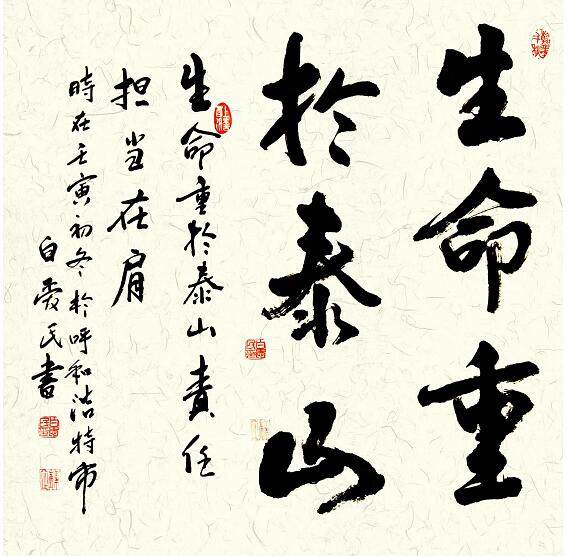 生命重
於泰山
生命重於泰山責任
担当在肩
時在壬寅初冬於呼和浩特市
白愛民書